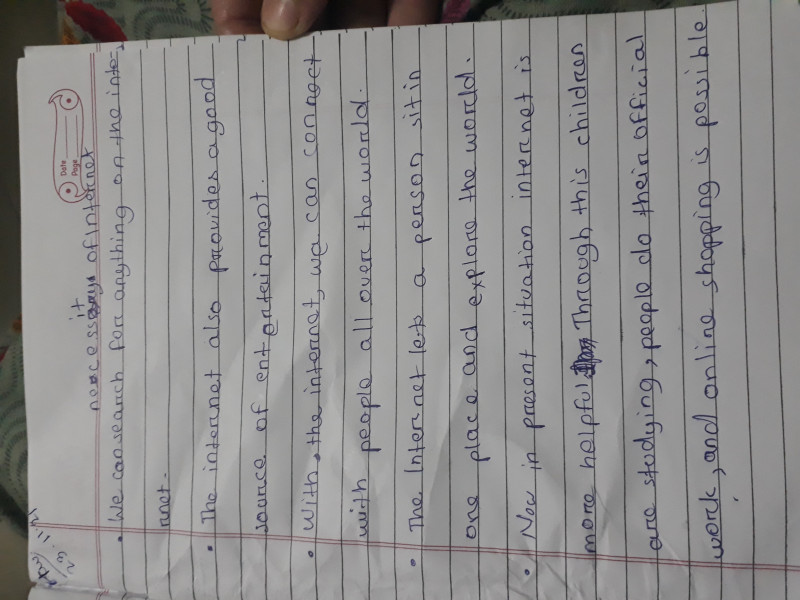 Date
Page
necessity of Internet
• We can search for anything on the inte-
rnet.
• The internet also provides a good
source of entertainment.
• With, the internet, we can connect
with people all over the world.
• The Internet lets a person sit in
one place and explore the world.
• Now in present situation internet is
more helpful Through this children
are studying, people do their official
work, and online shopping is possible.